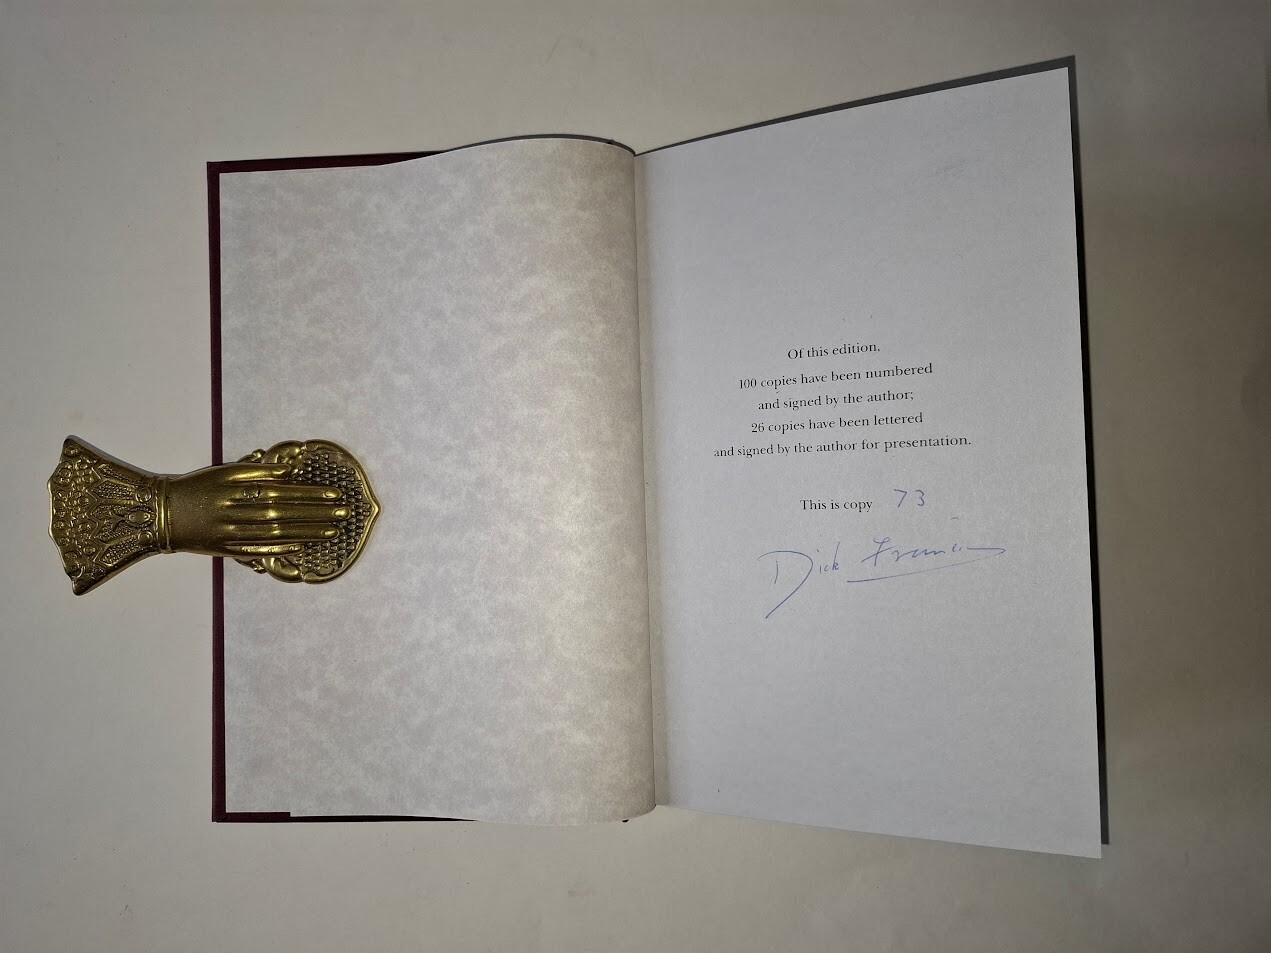 Of this edition,
100 copies have been numbered
and signed by the author;
26 copies have been lettered
and signed by the author for presentation.
This is copy 73
Dick Francis